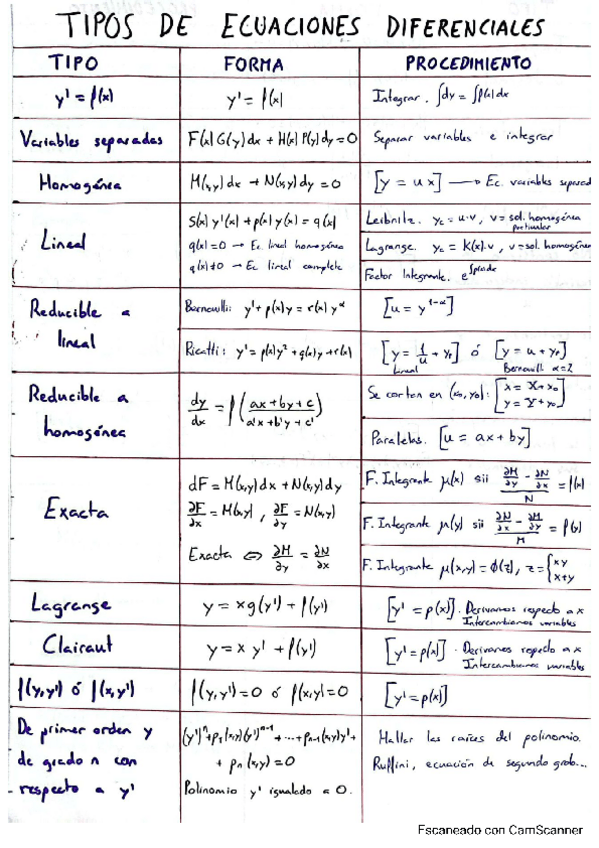 TIPOS DE ECUACIONES DIFERENCIALES
TIPO FORMA PROCEDIMIENTO
y' = f(x) y' = f(x) Integrar. ∫dy = ∫f(x)dx
Variables separadas F(x)G(y)dx + H(x)P(y)dy = 0 Separar variables e integrar
Homogénea M(x,y)dx + N(x,y)dy = 0 [y = u x] → Ec. variables separad
Lineal
S(x) y'(x) + p(x) y(x) = q(x)
q(x) = 0 → Ec. lineal homogénea
q(x) ≠ 0 → Ec lineal completa
Leibnitz. y_c = u·v, v = sol. homogénea
particular
Lagrange. y_c = K(x)·v, v = sol. homogéne
Factor Integrante. e^∫p(x)dx
Reducible a
lineal
Bernouilli: y' + p(x)y = r(x) y^α
[u = y^(1-α)]
Ricatti: y' = p(x)y² + q(x)y + r(x)
[y = 1/u + y_p] ó [y = u + y_p]
Lineal Bernouilli α=2
Reducible a
homogénea
dy/dx = f((ax + by + c)/(a'x + b'y + c'))
Se cortan en (x₀,y₀): [x = X + x₀
y = Y + y₀]
Paralelas. [u = ax + by]
Exacta
dF = M(x,y)dx + N(x,y)dy
∂F/∂x = M(x,y), ∂F/∂y = N(x,y)
Exacta ⇔ ∂M/∂y = ∂N/∂x
F. Integrante μ(x) sii (∂M/∂y - ∂N/∂x)/N = f(x)
F. Integrante μ(y) sii (∂N/∂x - ∂M/∂y)/M = f(y)
F. Integrante μ(x,y) = φ(z), z = {xy
x+y
Lagrange y = x g(y') + f(y') [y' = p(x)]. Derivamos respecto a x
Intercambiamos variables
Clairaut y = x y' + f(y') [y' = p(x)]. Derivamos respecto a x
Intercambiamos variables
f(y,y') ó f(x,y') f(y,y') = 0 ó f(x,y) = 0 [y' = p(x)]
De primer orden y
de grado n con
respecto a y'
(y')ⁿ + p₁(x,y)(y')ⁿ⁻¹ + ... + pₙ₋₁(x,y)y' +
+ pₙ(x,y) = 0
Polinomio y' igualado a 0.
Hallar las raíces del polinomio.
Ruffini, ecuación de segundo grado...
Escaneado con CamScanner